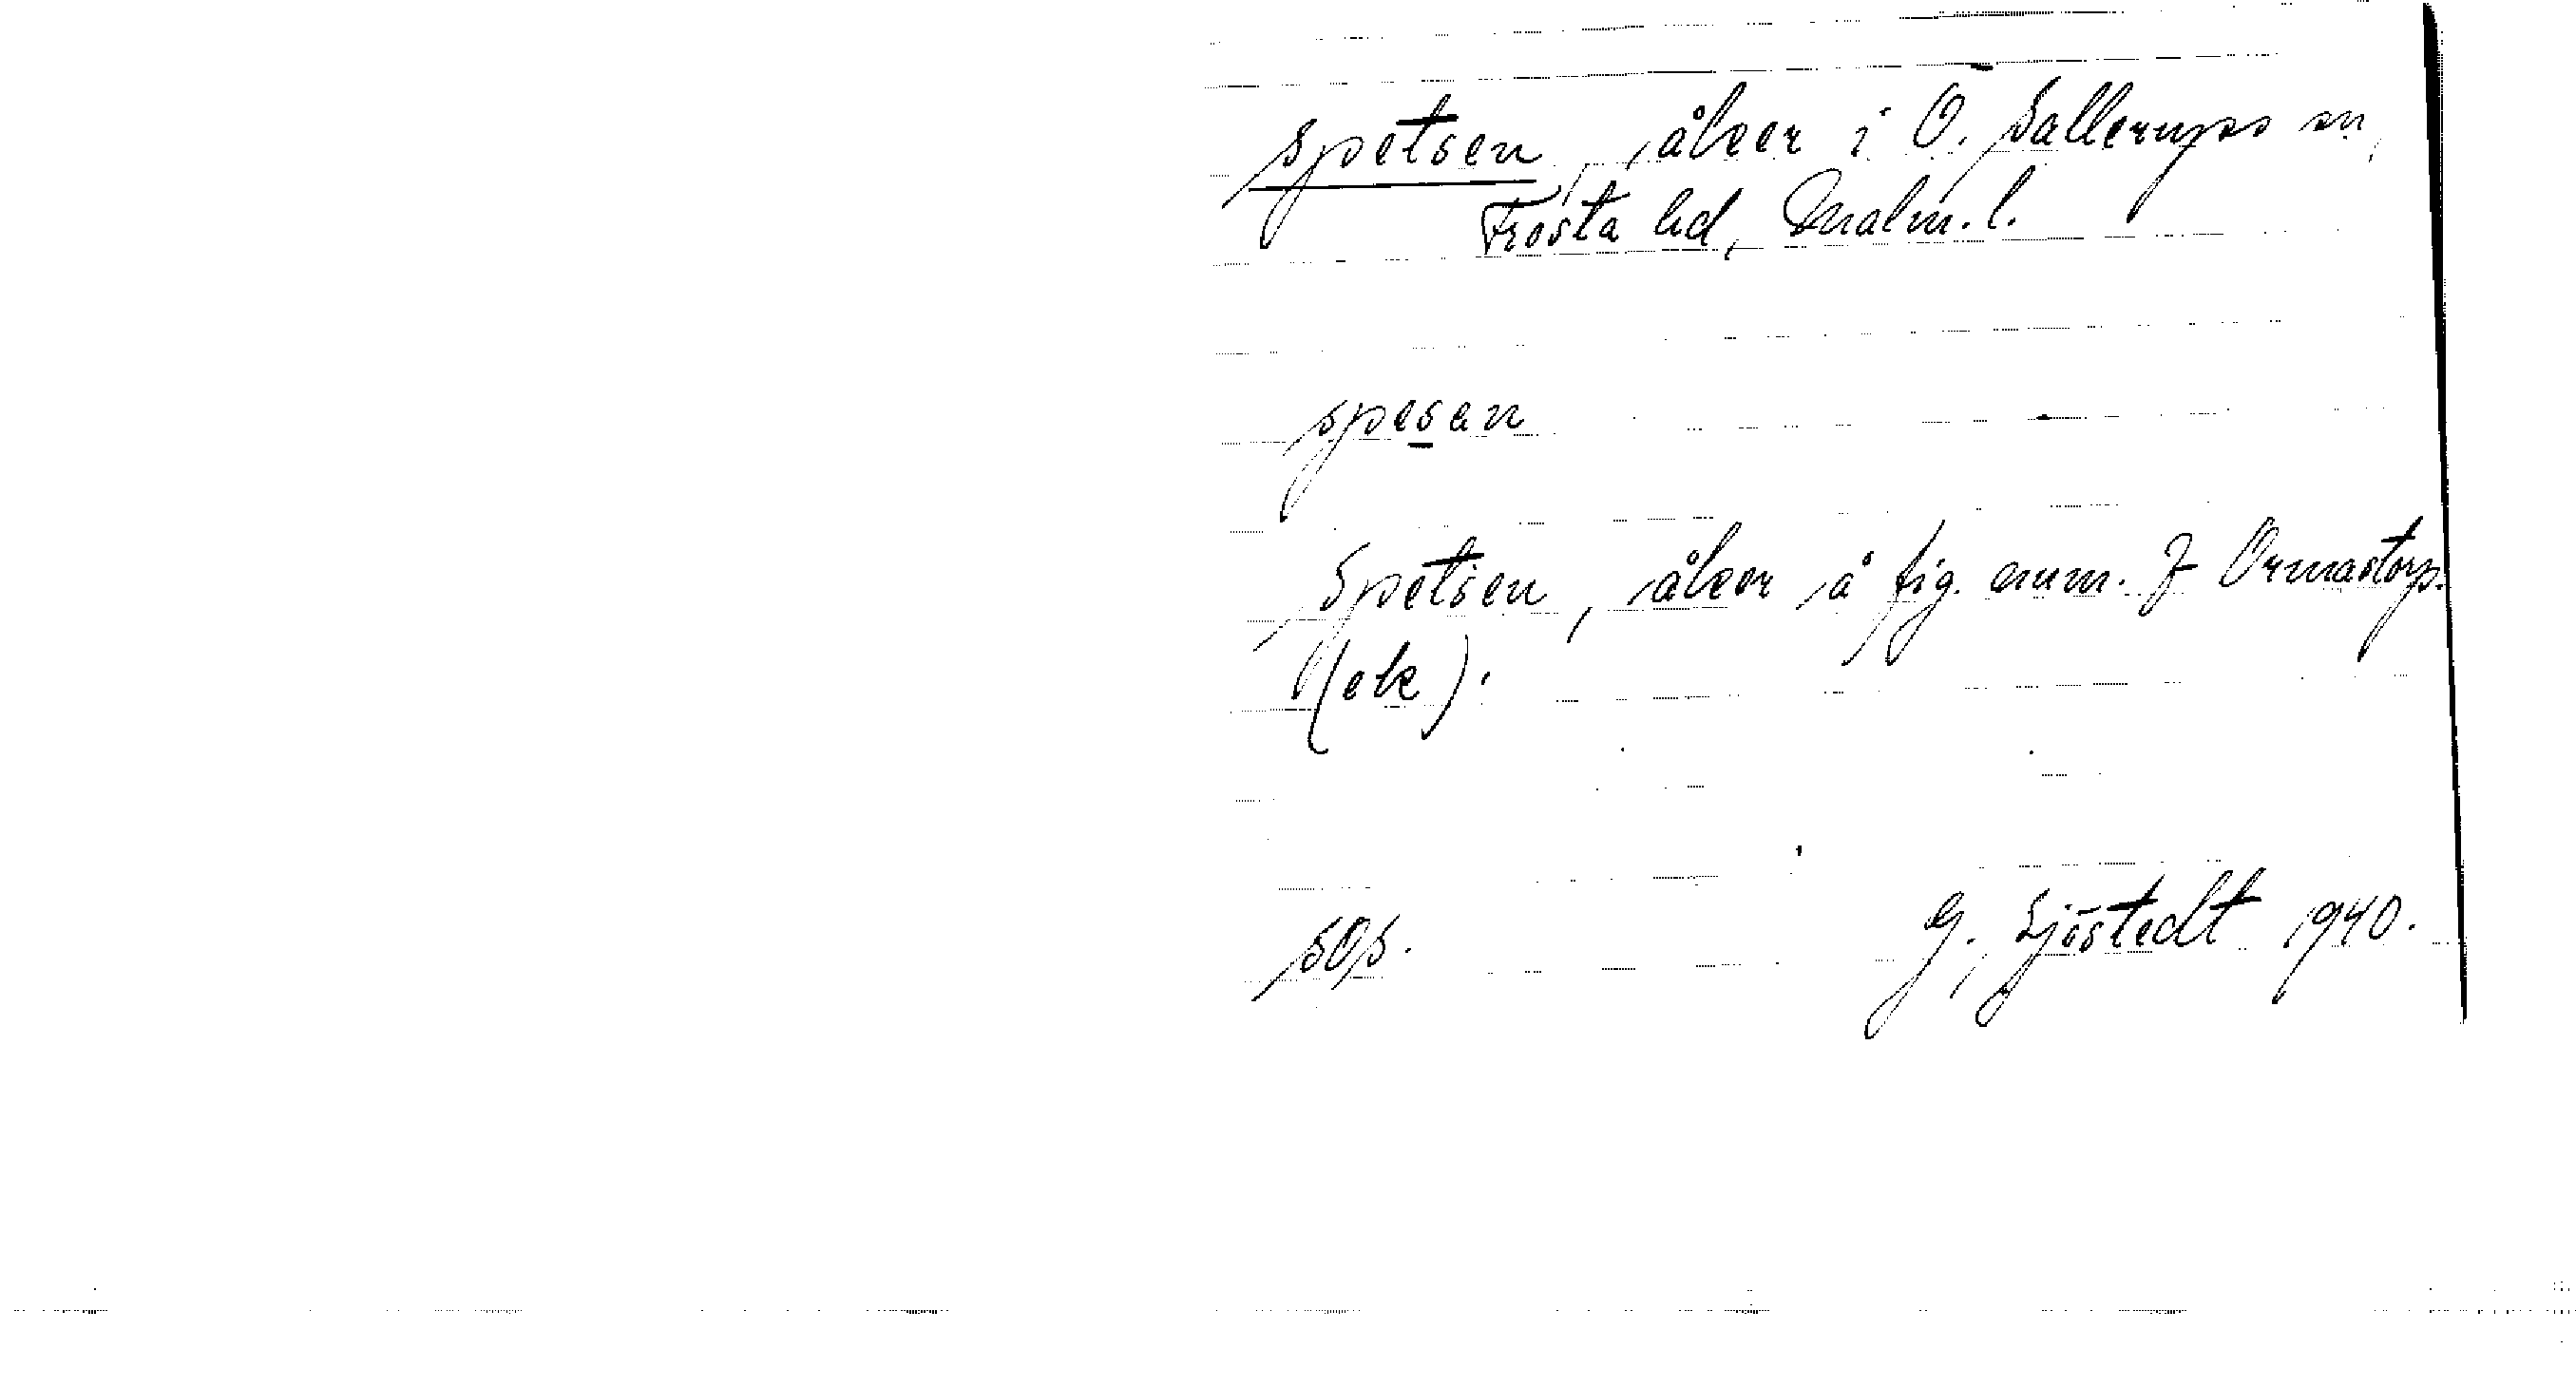 Spetsen, åker i Ö. Sallerups sn,
Frosta hd, Malm. l.
spesen
Spetsen, åker å fig. enum. 7 Ormastorp.
(ek).
SOS.
G. Sjöstedt 1940.